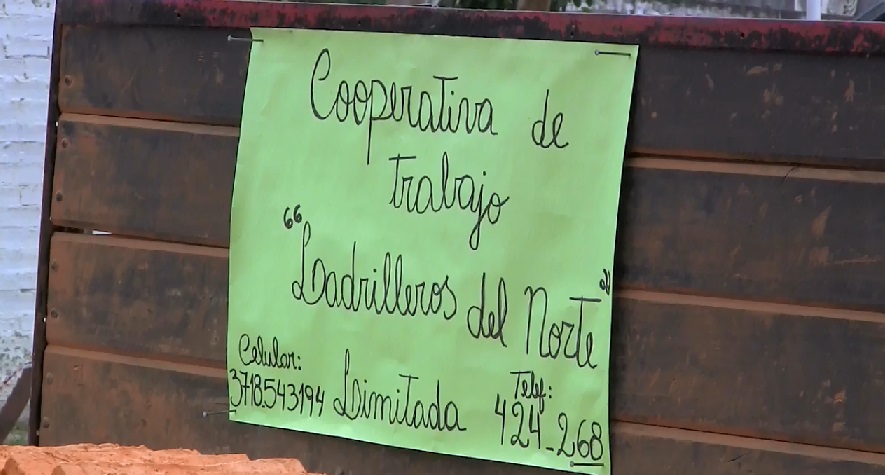 Cooperativa de
trabajo
"Ladrilleros del Norte"
Limitada
Celular:
3718543194
Telef:
424-268